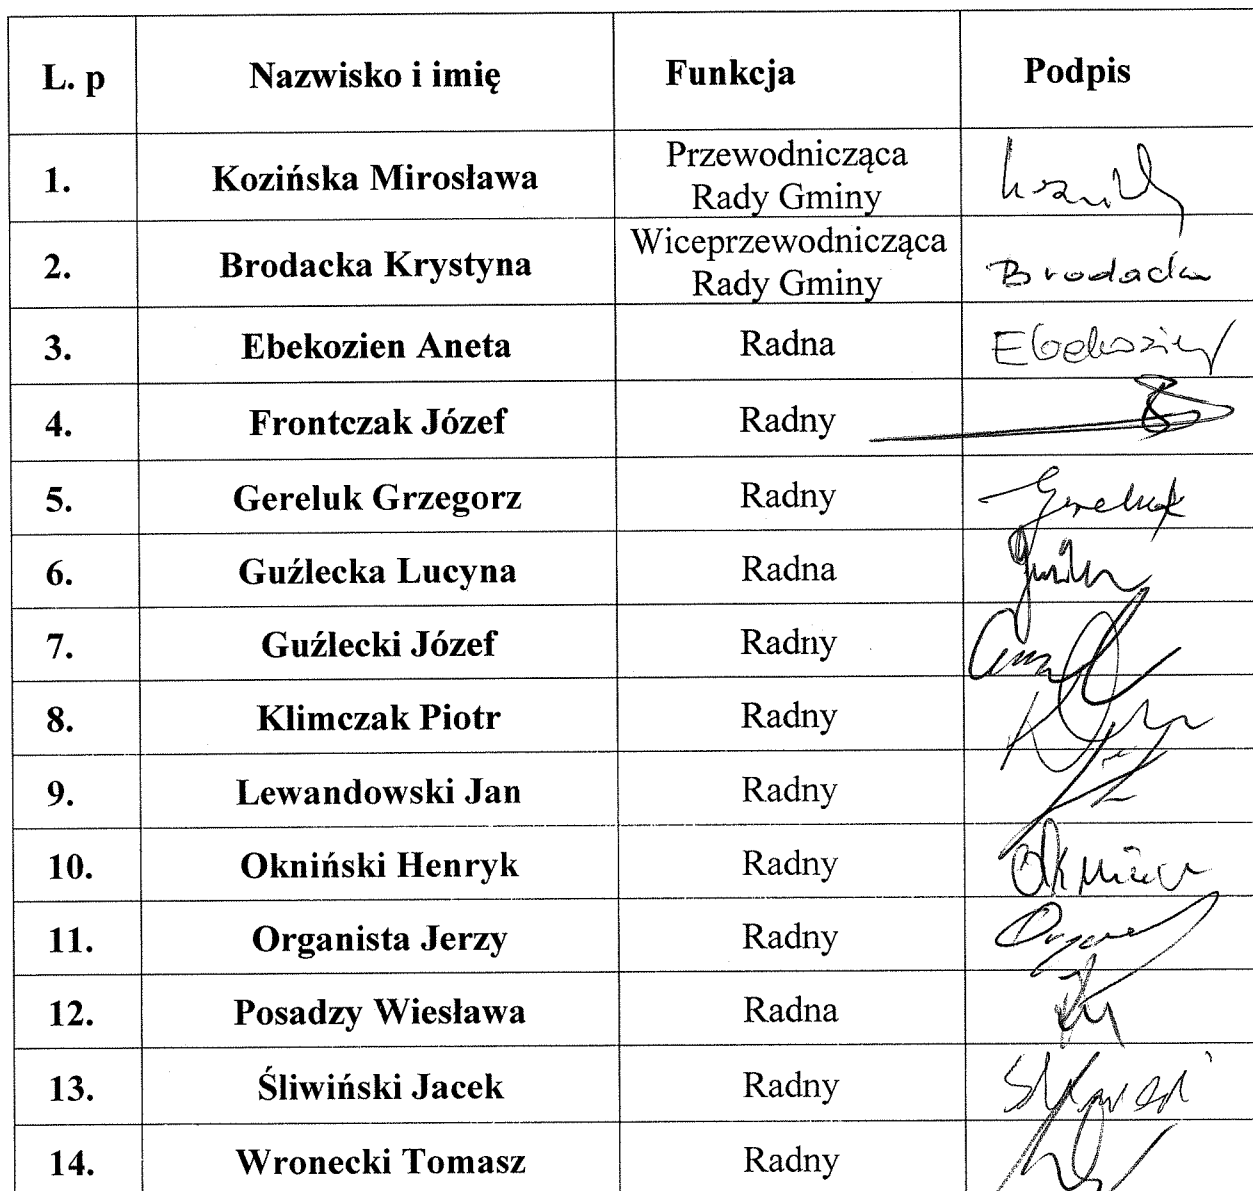 L. p Nazwisko i imię Funkcja Podpis
1. Kozińska Mirosława Przewodnicząca
Rady Gminy
2. Brodacka Krystyna Wiceprzewodnicząca
Rady Gminy Brodacka
3. Ebekozien Aneta Radna Ebekozien
4. Frontczak Józef Radny
5. Gereluk Grzegorz Radny Gereluk
6. Guźlecka Lucyna Radna
7. Guźlecki Józef Radny
8. Klimczak Piotr Radny
9. Lewandowski Jan Radny
10. Okniński Henryk Radny
11. Organista Jerzy Radny
12. Posadzy Wiesława Radna
13. Śliwiński Jacek Radny
14. Wronecki Tomasz Radny